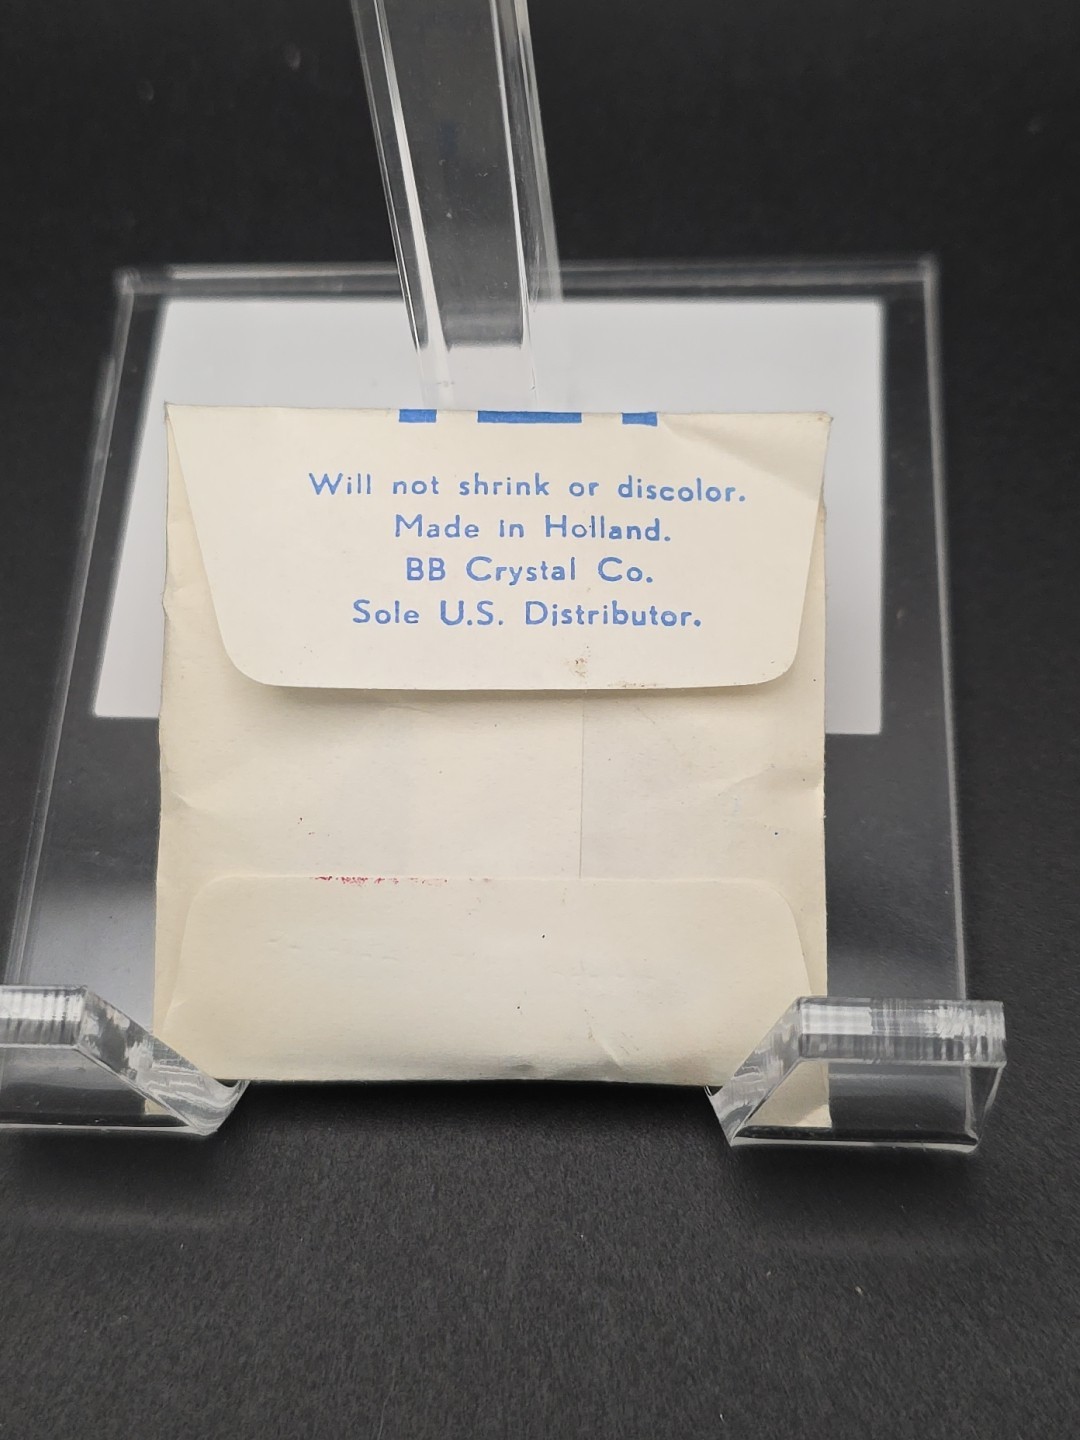 Will not shrink or discolor.
Made in Holland.
BB Crystal Co.
Sole U.S. Distributor.